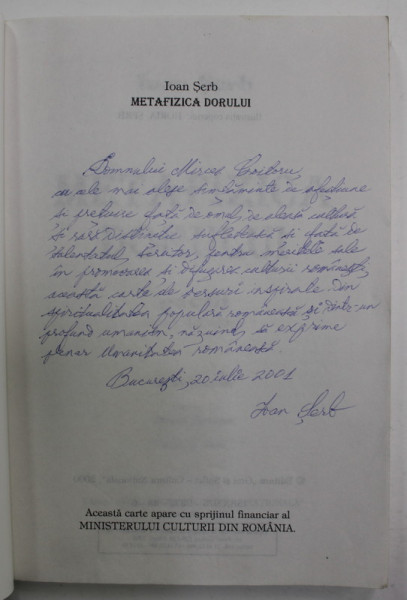 Ioan Șerb
METAFIZICA DORULUI
Domnului Mircea Croitoru,
cu cele mai alese simțăminte de afecțiune
și prețuire față de omul de aleasă cultură
și rară distincție sufletească și față de
talentatul scriitor, pentru meritele sale
în promovarea și difuzarea culturii românești,
această carte de versuri inspirate din
spiritualitatea populară românească și dintr-un
profund umanism, năzuind să exprime
plenar umanitatea românească.
București, 20 iulie 2001
Ioan Șerb
Această carte apare cu sprijinul financiar al
MINISTERULUI CULTURII DIN ROMÂNIA.